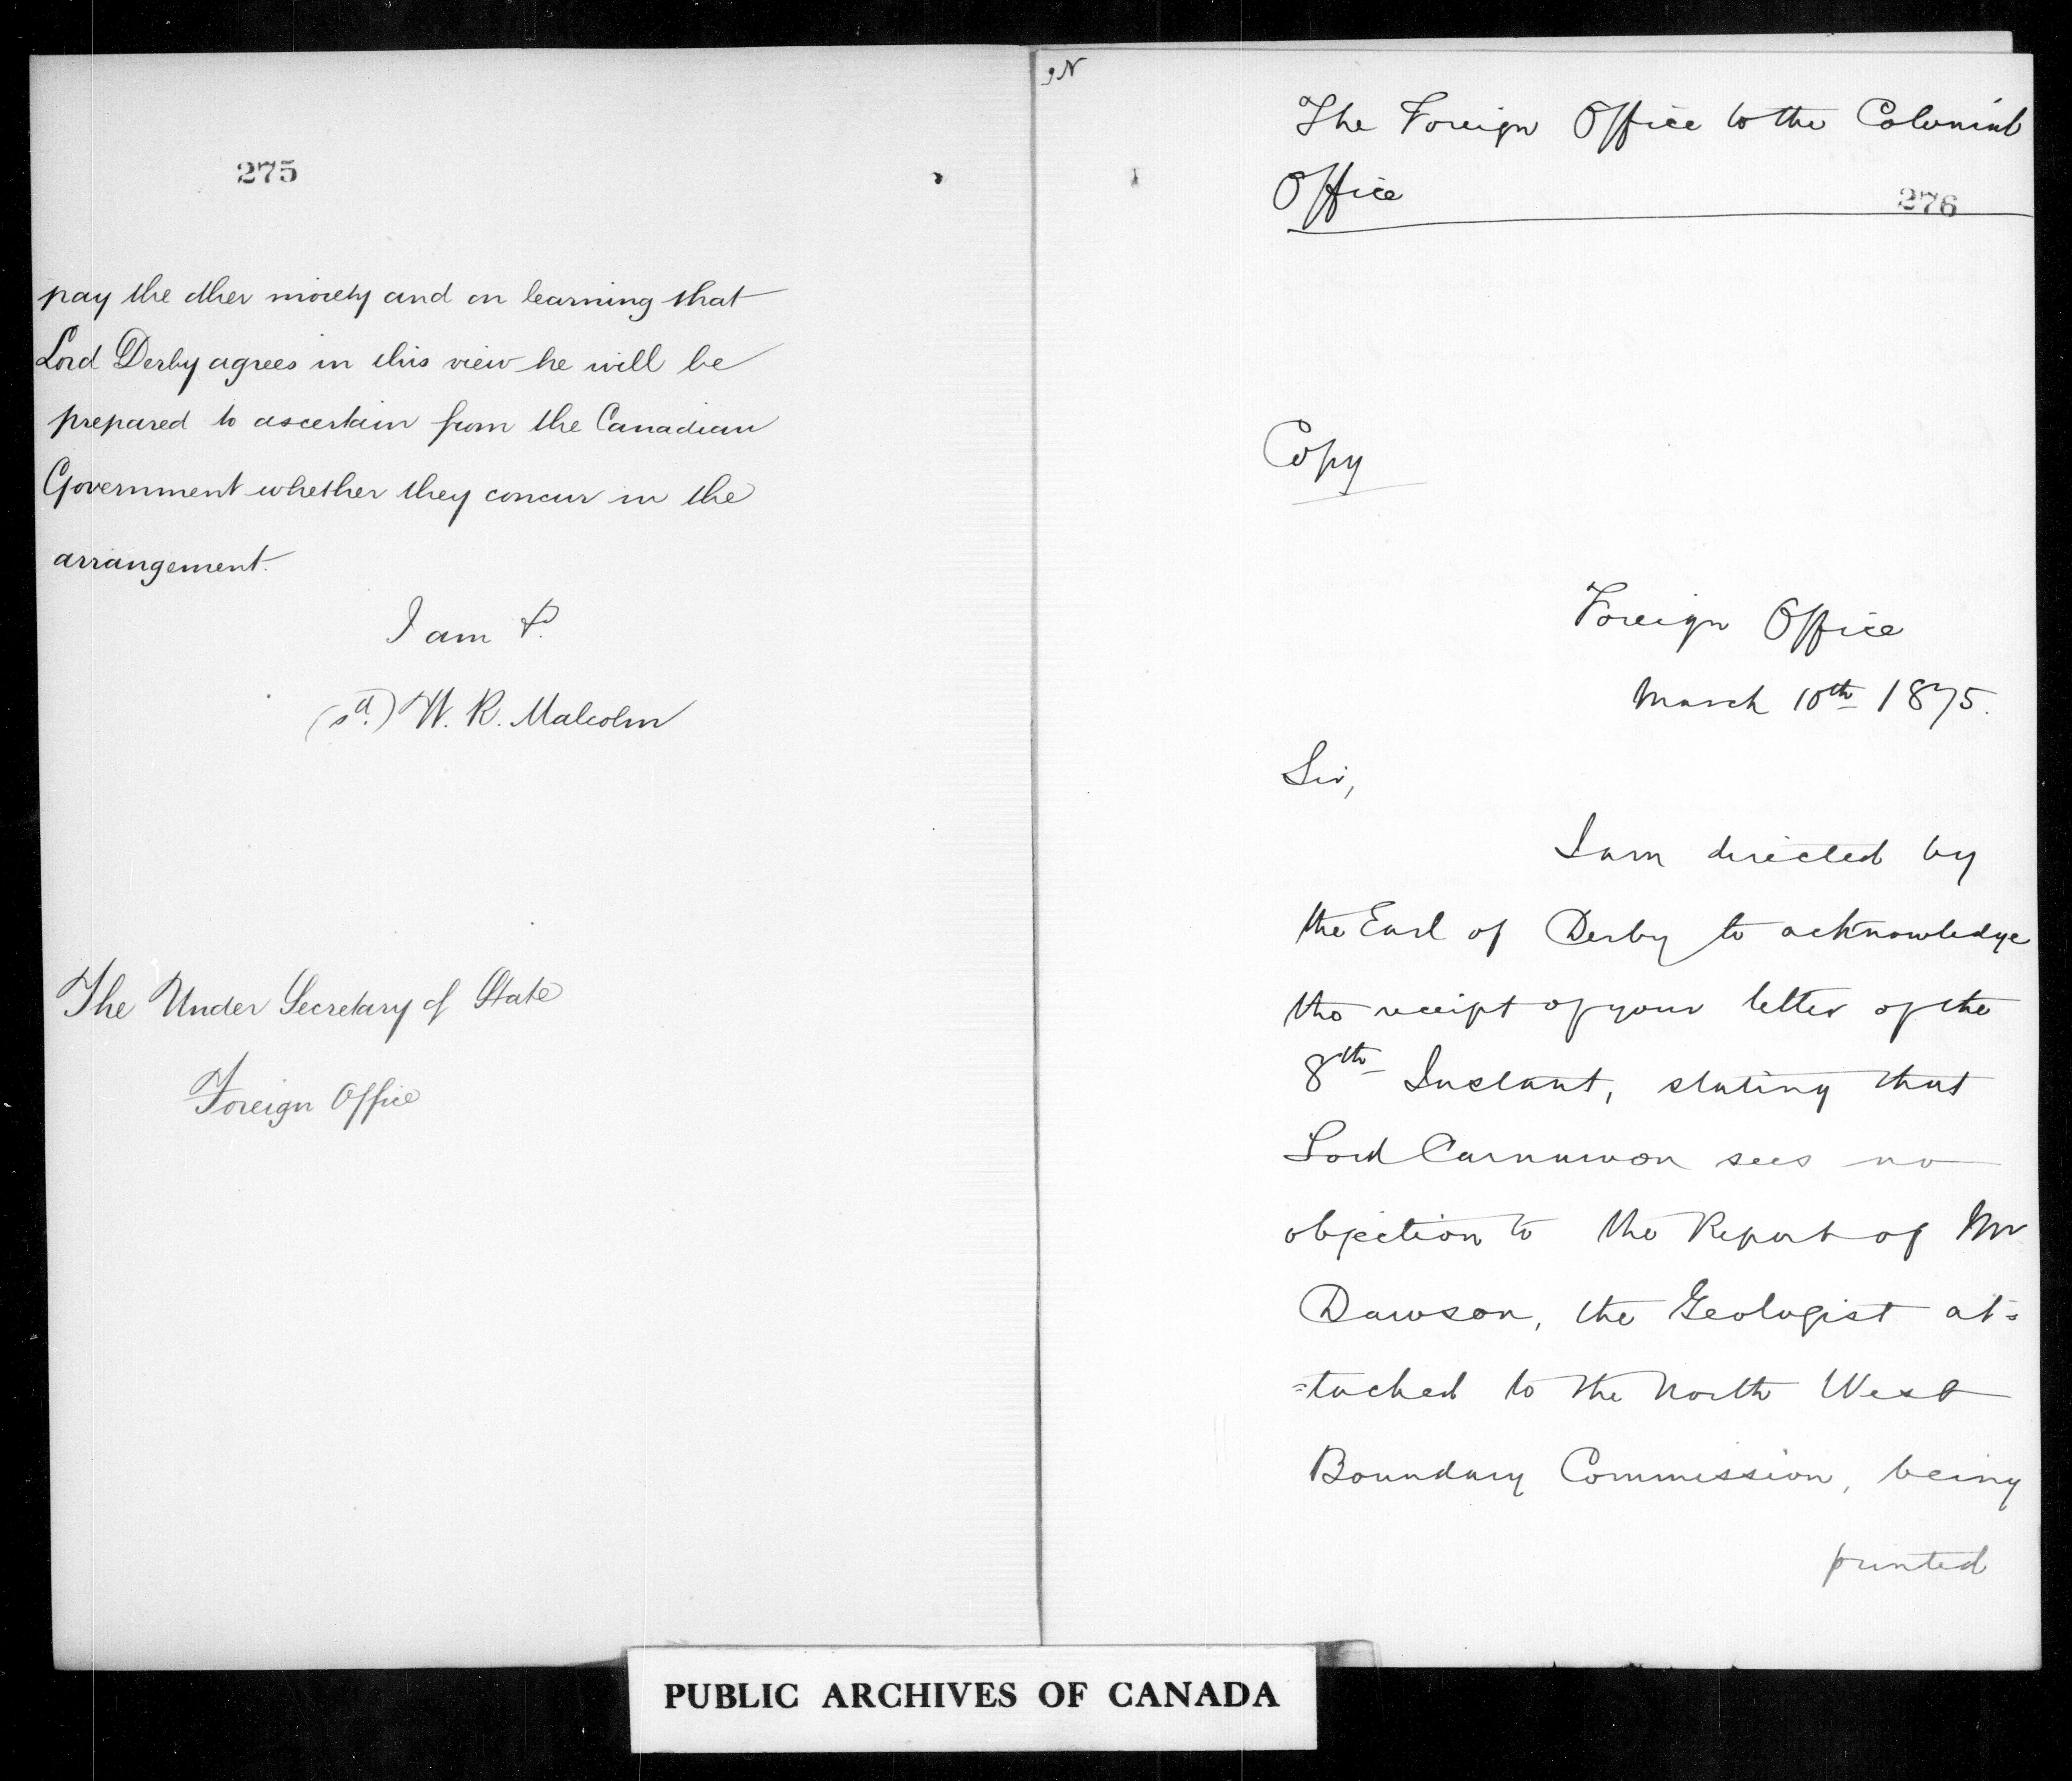 275
pay the other moiety and on learning that
Lord Derby agrees in this view he will be
prepared to ascertain from the Canadian
Government whether they concur in the
arrangement.
I am &.
(sd.) W. R. Malcolm
The Under Secretary of State
Foreign Office
The Foreign Office to the Colonial
Office
276
Copy
Foreign Office
March 10th 1875.
Sir,
I am directed by
the Earl of Derby to acknowledge
the receipt of your letter of the
8th Instant, stating that
Lord Carnarvon sees no
objection to the Report of Mr
Dawson, the Geologist at=
=tached to the North West
Boundary Commission, being
printed
PUBLIC ARCHIVES OF CANADA